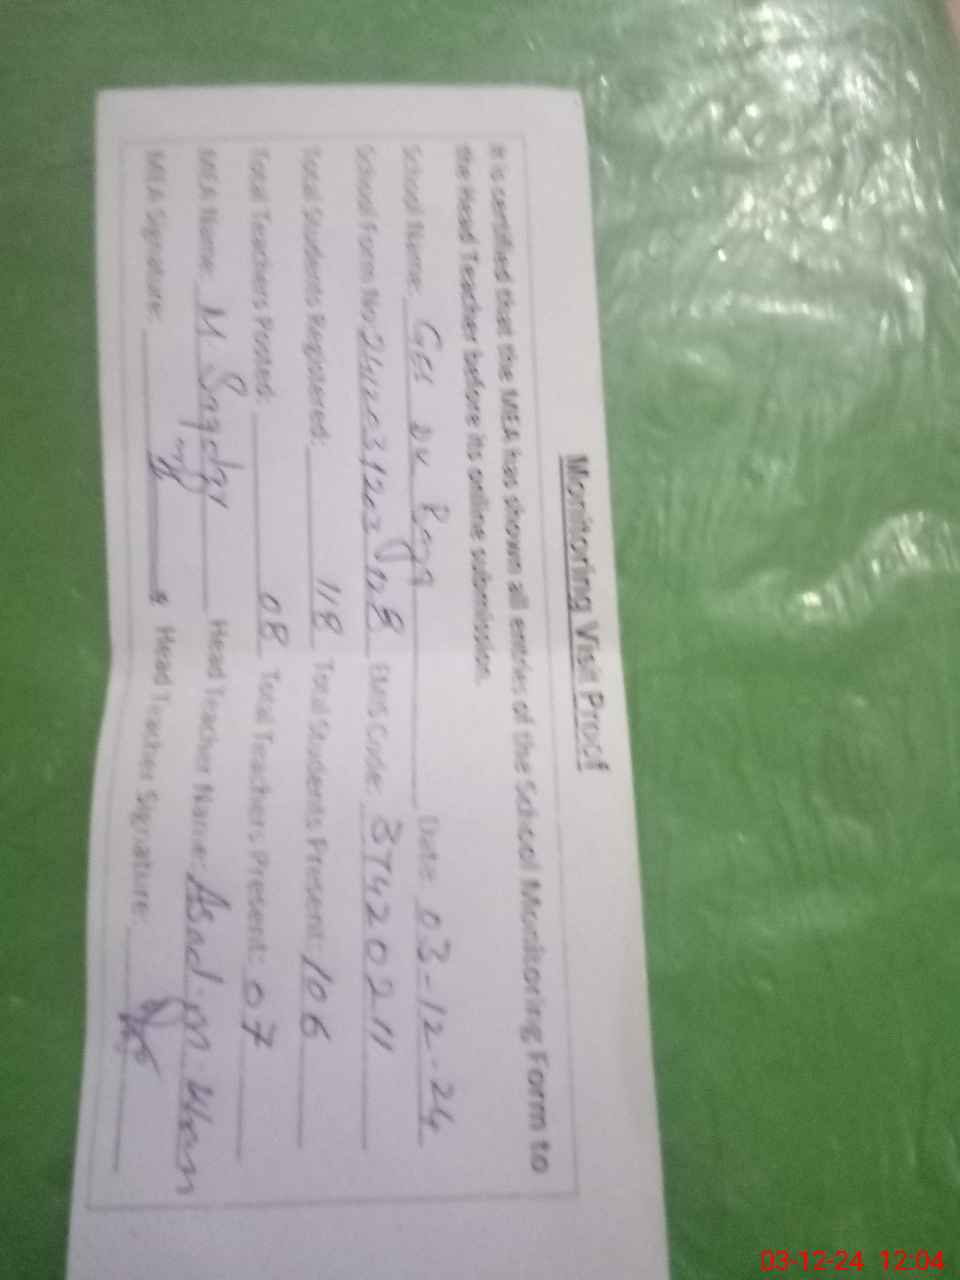 Monitoring Visit Proof
It is certified that the MEA has shown all entries of the School Monitoring Form to
the Head Teacher before its online submission.
School Name: Date: 03-12-24
School Form No: EMIS Code:
Total Students Registered: 118 Total Students Present: 106
Total Teachers Posted: 08 Total Teachers Present: 07
MEA Name: M Head Teacher Name: Asad
MEA Signature: Head Teacher Signature:
03-12-24 12:04